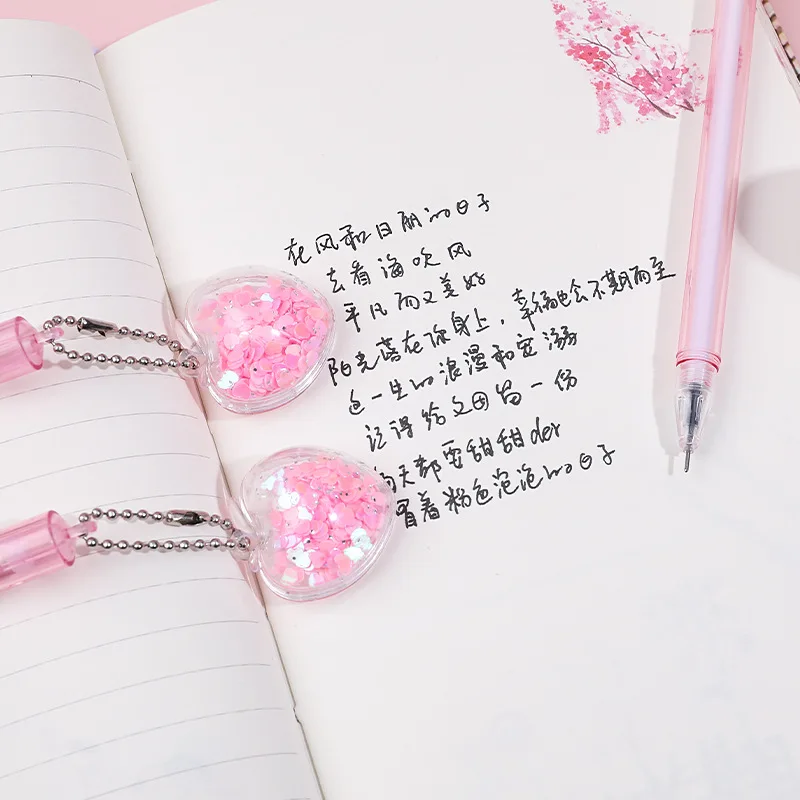 在风和日丽的日子
去看海吹风
平凡而又美好
阳光落在你身上，幸福也会不期而至
这一生的浪漫和宠溺
记得给自己留一份
每天都要甜甜der
冒着粉色泡泡的日子